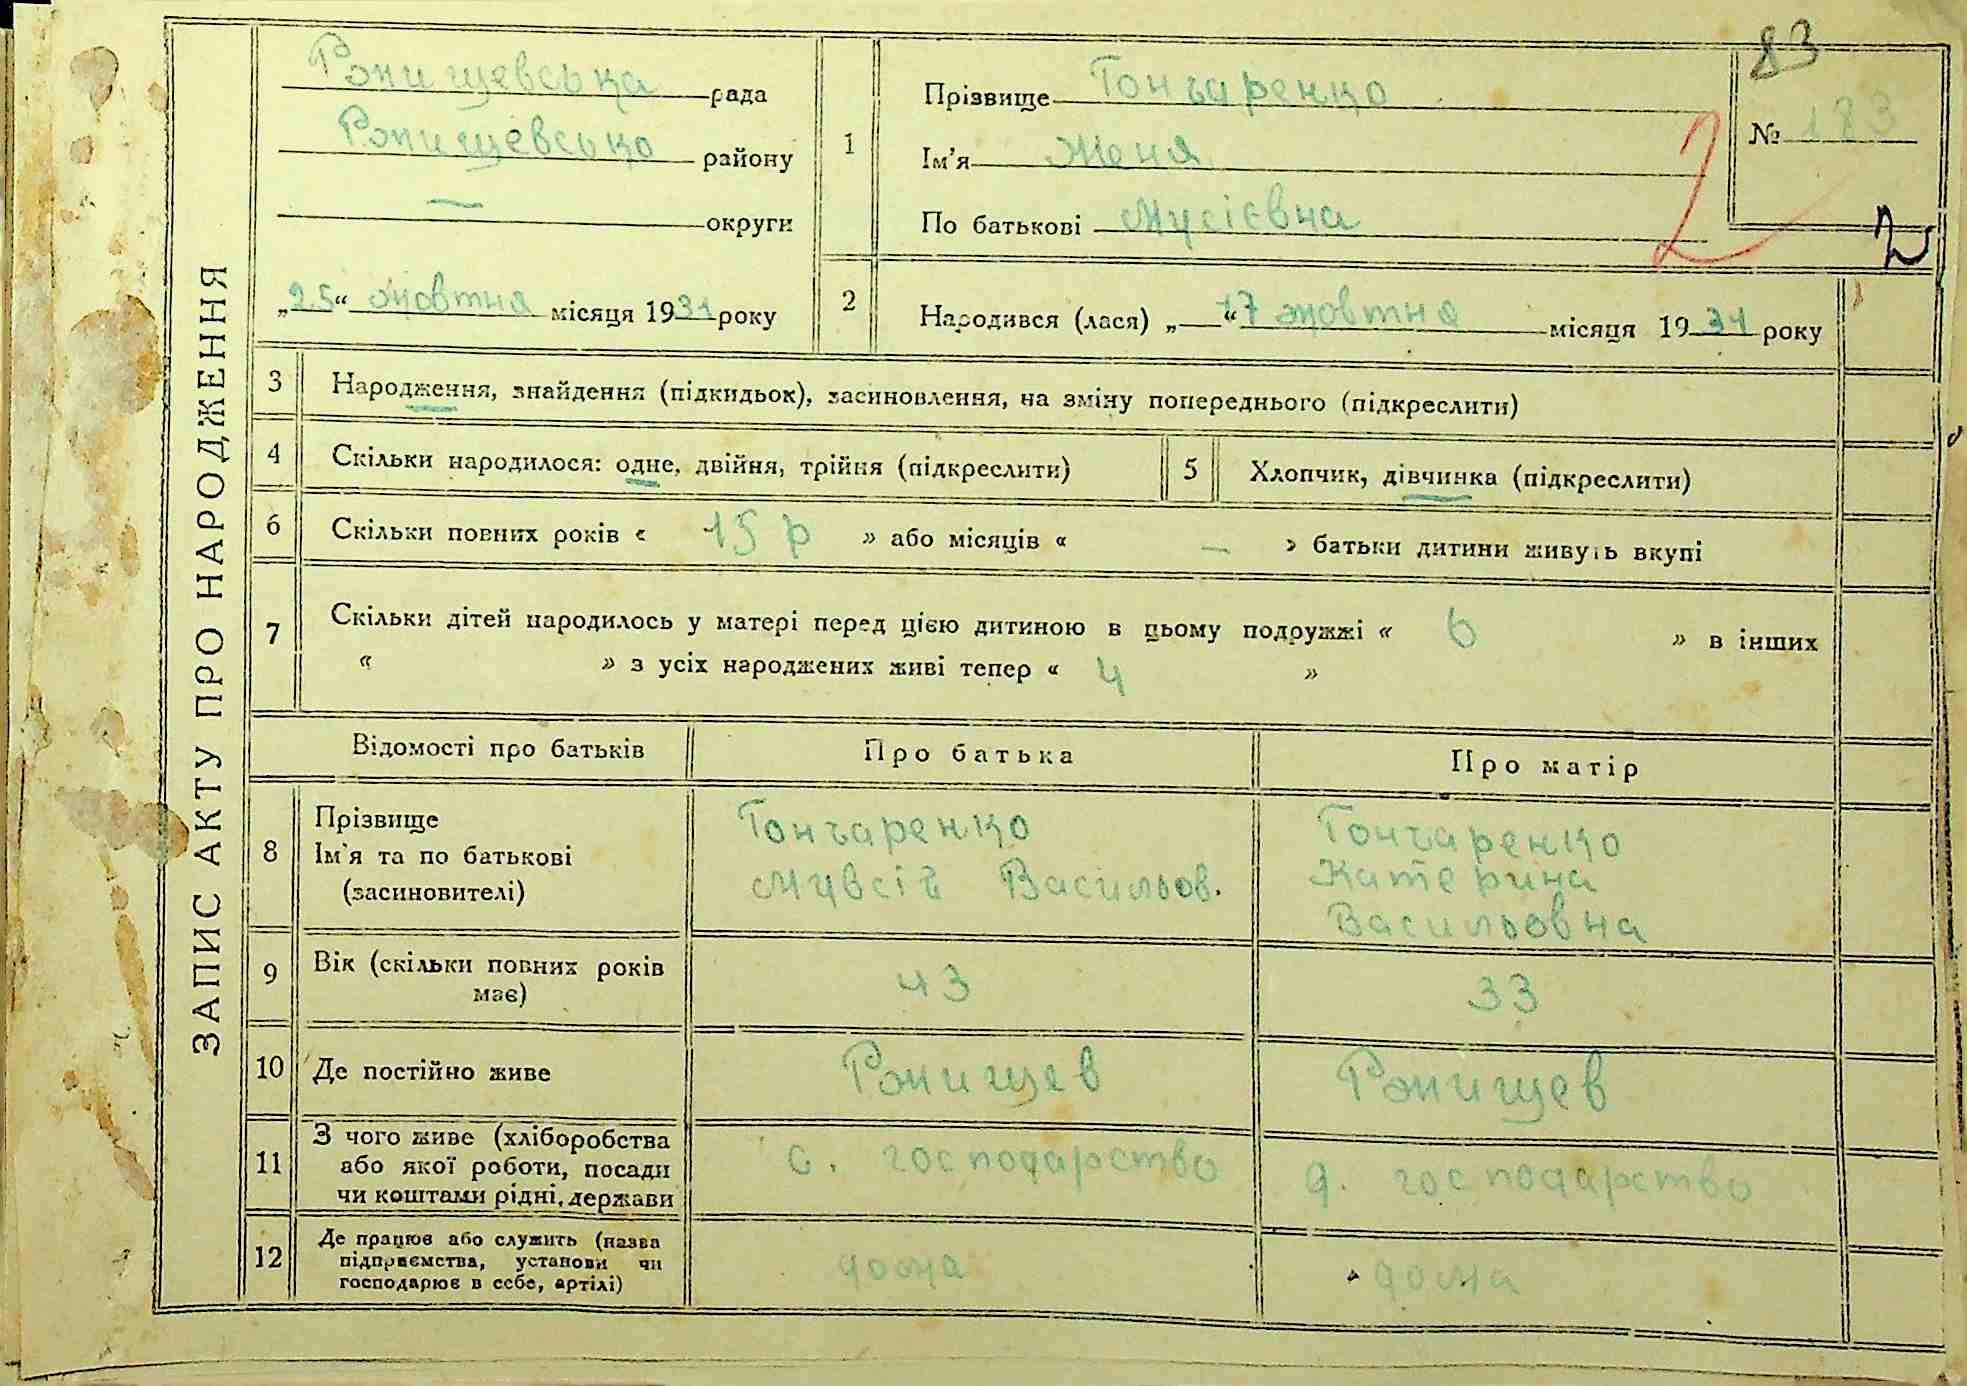 ЗАПИС АКТУ ПРО НАРОДЖЕННЯ
Ржищевська рада
Ржищевсько району
— округи
„25“ жовтня місяця 1931 року
1
Прізвище Гончаренко
Ім'я Женя
По батькові Мусієвна
83
№ 183
2
2
2
Народився (лася) „—“ 17 жовтня місяця 1931 року
3
Народження, знайдення (підкидьок), засиновлення, на зміну попереднього (підкреслити)
4
Скільки народилося: одне, двійня, трійня (підкреслити)
5
Хлопчик, дівчинка (підкреслити)
6
Скільки повних років « 15 р » або місяців « — » батьки дитини живуть вкупі
7
Скільки дітей народилось у матері перед цією дитиною в цьому подружжі « 6 » в інших
« » з усіх народжених живі тепер « 4 »
Відомості про батьків
Про батька
Про матір
8
Прізвище
Ім'я та по батькові
(засиновителі)
Гончаренко
Мувсій Васильов.
Гончаренко
Катерина
Васильовна
9
Вік (скільки повних років
має)
43
33
10
Де постійно живе
Ржищев
Ржищев
11
З чого живе (хліборобства
або якої роботи, посади
чи коштами рідні, держави
с. господарство
д. господарство
12
Де працює або служить (назва
підприємства, установи чи
господарює в себе, артілі)
дома
дома